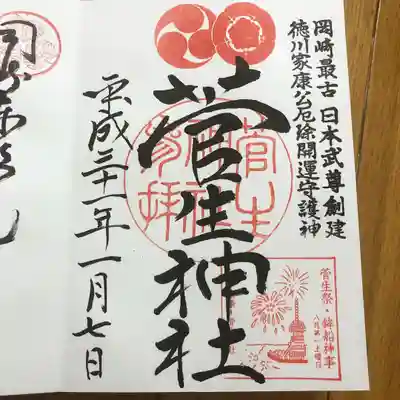 岡崎最古 日本武尊創建
徳川家康公厄除開運守護神
菅生神社
平成三十一年一月七日
菅生祭・鉾船神事
八月第一土曜日